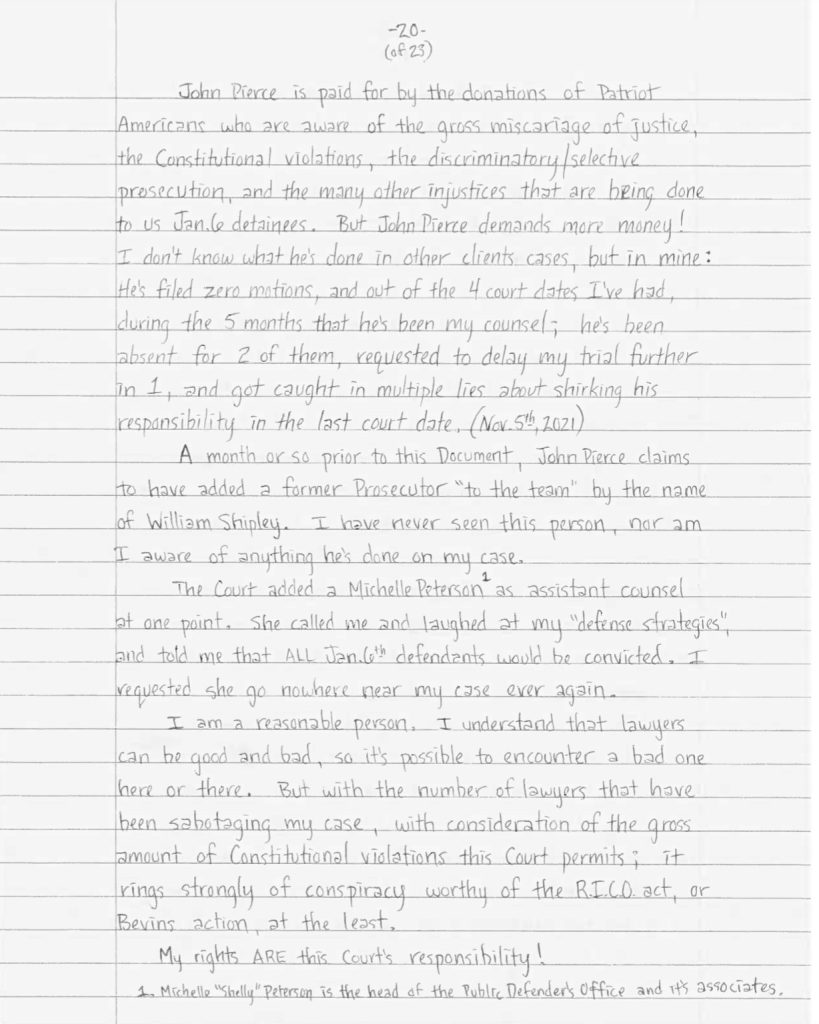 -20-
(of 23)
John Pierce is paid for by the donations of Patriot
Americans who are aware of the gross miscariage of justice,
the Constitutional violations, the discriminatory/selective
prosecution, and the many other injustices that are being done
to us Jan.6 detainees. But John Pierce demands more money!
I don't know what he's done in other clients cases, but in mine:
He's filed zero motions, and out of the 4 court dates I've had,
during the 5 months that he's been my counsel; he's been
absent for 2 of them, requested to delay my trial further
in 1, and got caught in multiple lies about shirking his
responsibility in the last court date. (Nov.5th, 2021)
A month or so prior to this Document, John Pierce claims
to have added a former Prosecutor "to the team" by the name
of William Shipley. I have never seen this person, nor am
I aware of anything he's done on my case.
The Court added a Michelle Peterson1 as assistant counsel
at one point. She called me and laughed at my "defense strategies",
and told me that ALL Jan.6th defendants would be convicted. I
requested she go nowhere near my case ever again.
I am a reasonable person. I understand that lawyers
can be good and bad, so it's possible to encounter a bad one
here or there. But with the number of lawyers that have
been sabotaging my case, with consideration of the gross
amount of Constitutional violations this Court permits; it
rings strongly of conspiracy worthy of the R.I.C.O. act, or
Bevins action, at the least.
My rights ARE this Court's responsibility!
1. Michelle "Shelly" Peterson is the head of the Public Defender's Office and it's associates.